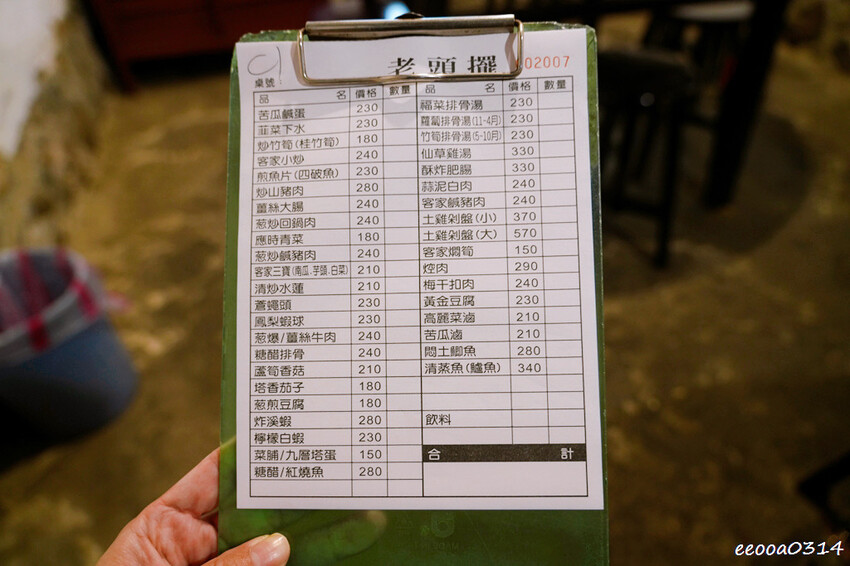 老頭擺
02007
桌號 01
品名 價格 數量
苦瓜鹹蛋 230
韮菜下水 230
炒竹筍(桂竹筍) 180
客家小炒 240
煎魚片(四破魚) 230
炒山豬肉 280
薑絲大腸 240
葱炒回鍋肉 240
應時青菜 180
葱炒鹹豬肉 240
客家三寶(南瓜.芋頭.白菜) 210
清炒水蓮 210
蒼蠅頭 230
鳳梨蝦球 230
葱爆/薑絲牛肉 240
糖醋排骨 240
蘆筍香菇 210
塔香茄子 180
葱煎豆腐 180
炸溪蝦 280
檸檬白蝦 230
菜脯/九層塔蛋 150
糖醋/紅燒魚 280
品名 價格 數量
福菜排骨湯 230
蘿蔔排骨湯(11-4月) 230
竹筍排骨湯(5-10月) 230
仙草雞湯 330
酥炸肥腸 330
蒜泥白肉 240
客家鹹豬肉 240
土雞剁盤(小) 370
土雞剁盤(大) 570
客家燜筍 150
焢肉 290
梅干扣肉 240
黃金豆腐 230
高麗菜滷 210
苦瓜滷 210
悶土鯽魚 280
清蒸魚(鱸魚) 340
飲料
合計
eeooa0314